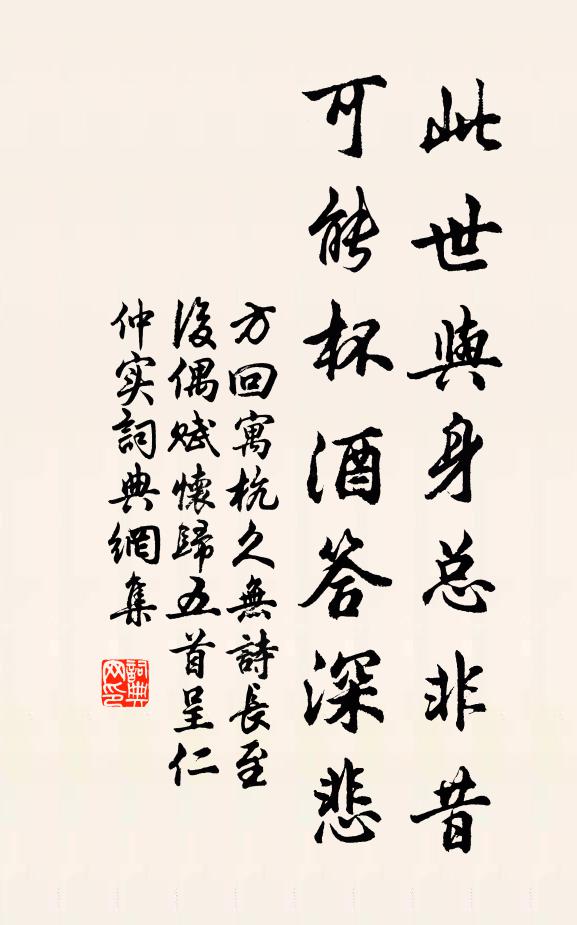 此世與身总非昔
可能杯酒答深悲
方回寓杭久無詩長至
後偶赋懷歸五首呈仁
仲实詞典網集
詞典
网印